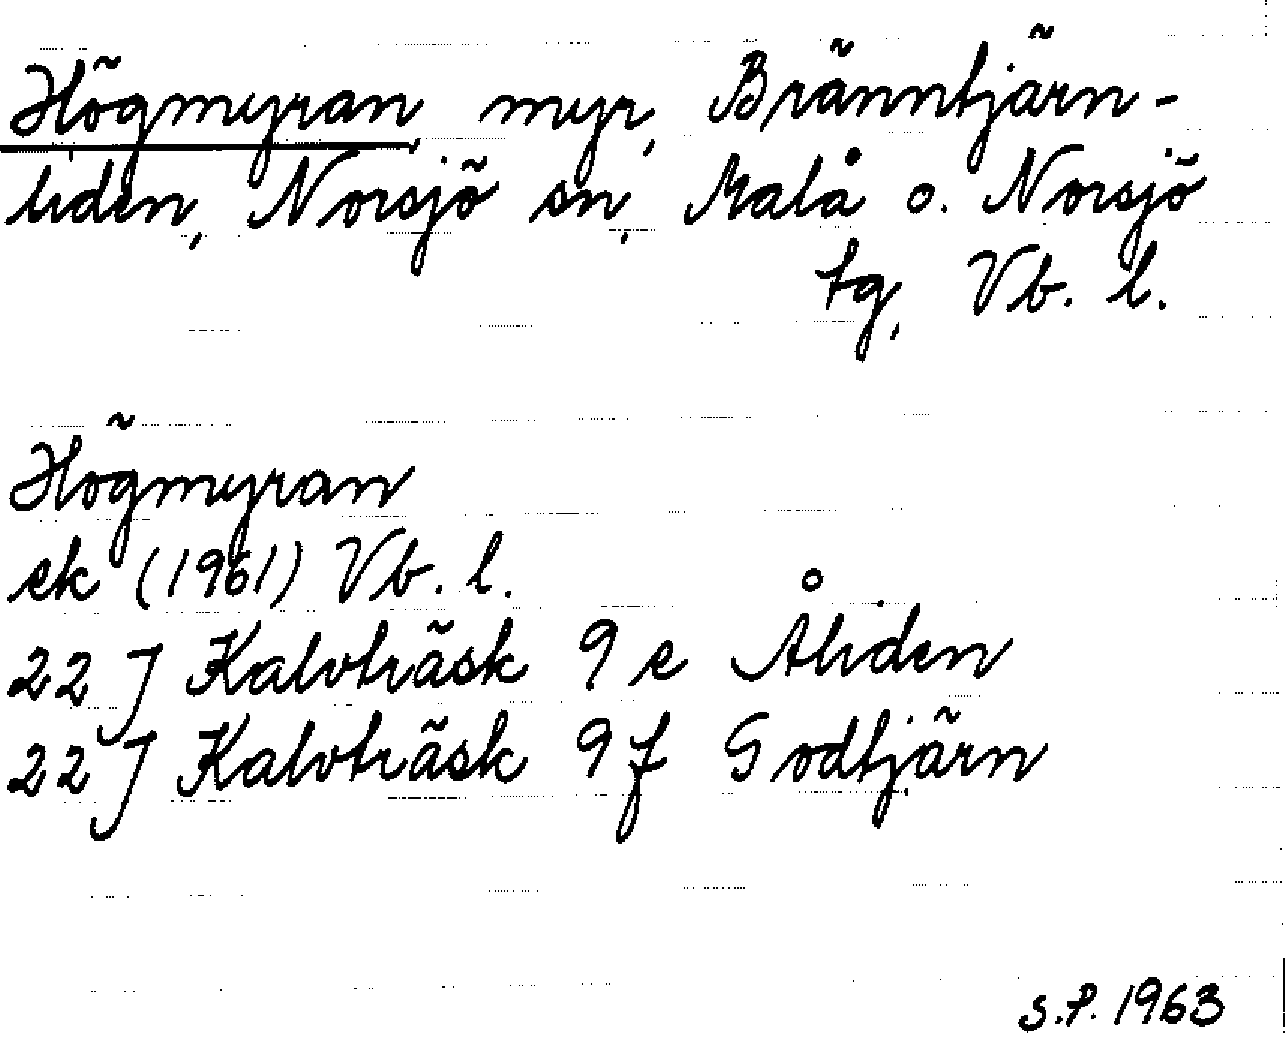 Högmyran, myr, Bränntjärn-
liden, Norsjö sn, Malå o. Norsjö
tg, Vb. l.
Högmyran
ek (1961) Vb. l.
22 J Kalvträsk 9 e Åliden
22 J Kalvträsk 9 f Godtjärn
S.P. 1963